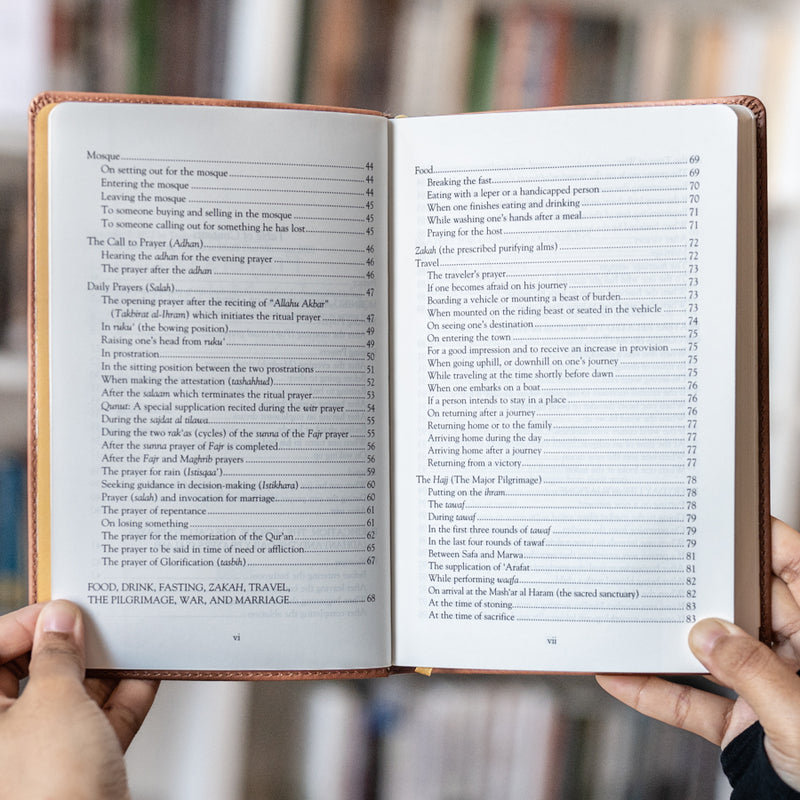 Mosque 44
On setting out for the mosque 44
Entering the mosque 44
Leaving the mosque 45
To someone buying and selling in the mosque 45
To someone calling out for something he has lost 45
The Call to Prayer (Adhan) 46
Hearing the adhan for the evening prayer 46
The prayer after the adhan 46
Daily Prayers (Salah) 47
The opening prayer after the reciting of "Allahu Akbar"
(Takbirat al-Ihram) which initiates the ritual prayer 47
In ruku' (the bowing position) 49
Raising one's head from ruku' 49
In prostration 50
In the sitting position between the two prostrations 51
When making the attestation (tashahhud) 52
After the salaam which terminates the ritual prayer 53
Qunut: A special supplication recited during the witr prayer 54
During the sajdat al tilawa 55
During the two rak'as (cycles) of the sunna of the Fajr prayer 55
After the sunna prayer of Fajr is completed 56
After the Fajr and Maghrib prayers 56
The prayer for rain (Istisqaa') 59
Seeking guidance in decision-making (Istikhara) 60
Prayer (salah) and invocation for marriage 60
The prayer of repentance 61
On losing something 61
The prayer for the memorization of the Qur'an 62
The prayer to be said in time of need or affliction 65
The prayer of Glorification (tasbih) 67
FOOD, DRINK, FASTING, ZAKAH, TRAVEL,
THE PILGRIMAGE, WAR, AND MARRIAGE 68
vi
Food 69
Breaking the fast 69
Eating with a leper or a handicapped person 70
When one finishes eating and drinking 70
While washing one's hands after a meal 71
Praying for the host 71
Zakah (the prescribed purifying alms) 72
Travel 72
The traveler's prayer 73
If one becomes afraid on his journey 73
Boarding a vehicle or mounting a beast of burden 73
When mounted on the riding beast or seated in the vehicle 73
On seeing one's destination 74
On entering the town 75
For a good impression and to receive an increase in provision 75
When going uphill, or downhill on one's journey 75
While traveling at the time shortly before dawn 75
When one embarks on a boat 76
If a person intends to stay in a place 76
On returning after a journey 76
Returning home or to the family 77
Arriving home during the day 77
Arriving home after a journey 77
Returning from a victory 77
The Hajj (The Major Pilgrimage) 78
Putting on the ihram 78
The tawaf 78
During tawaf 79
In the first three rounds of tawaf 79
In the last four rounds of tawaf 79
Between Safa and Marwa 81
The supplication of 'Arafat 81
While performing waqfa 82
On arrival at the Mash'ar al Haram (the sacred sanctuary) 82
At the time of stoning 83
At the time of sacrifice 83
vii